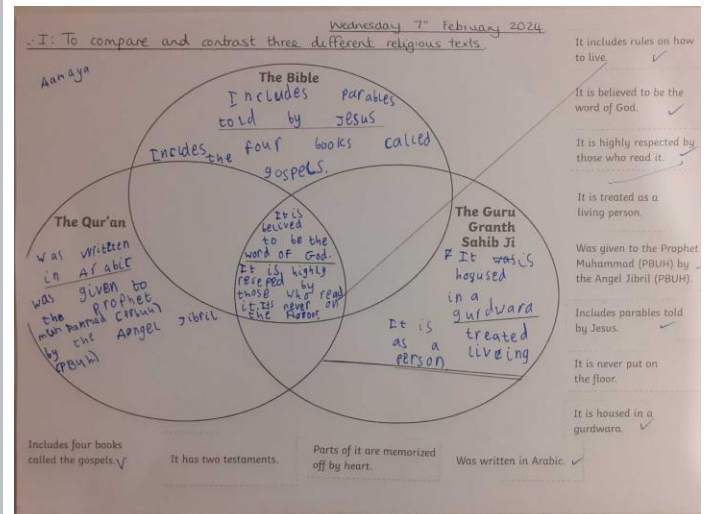 Wednesday 7th February 2024
L.I: To compare and contrast three different religious texts.
Aamaya
The Bible
Includes parables
told by Jesus
Incldes the four books called
gospels.
The Qur'an
was writtten
in Arabic
was given to
the prophet
muhammad (PBUH)
by the Aangel Jibril
(PBUH)
It is
belived
to be the
word of God.
It is highly
reseped by
those who read
it. Its never on
the
The Guru
Granth
Sahib Ji
It is
housed
in a
gurdwara
It is treated
as a liveing
person
It includes rules on how
to live.
It is believed to be the
word of God.
It is highly respected by
those who read it.
It is treated as a
living person.
Was given to the Prophet
Muhammad (PBUH) by
the Angel Jibril (PBUH).
Includes parables told
by Jesus.
It is never put on
the floor.
It is housed in a
gurdwara.
Includes four books
called the gospels.
It has two testaments.
Parts of it are memorized
off by heart.
Was written in Arabic.